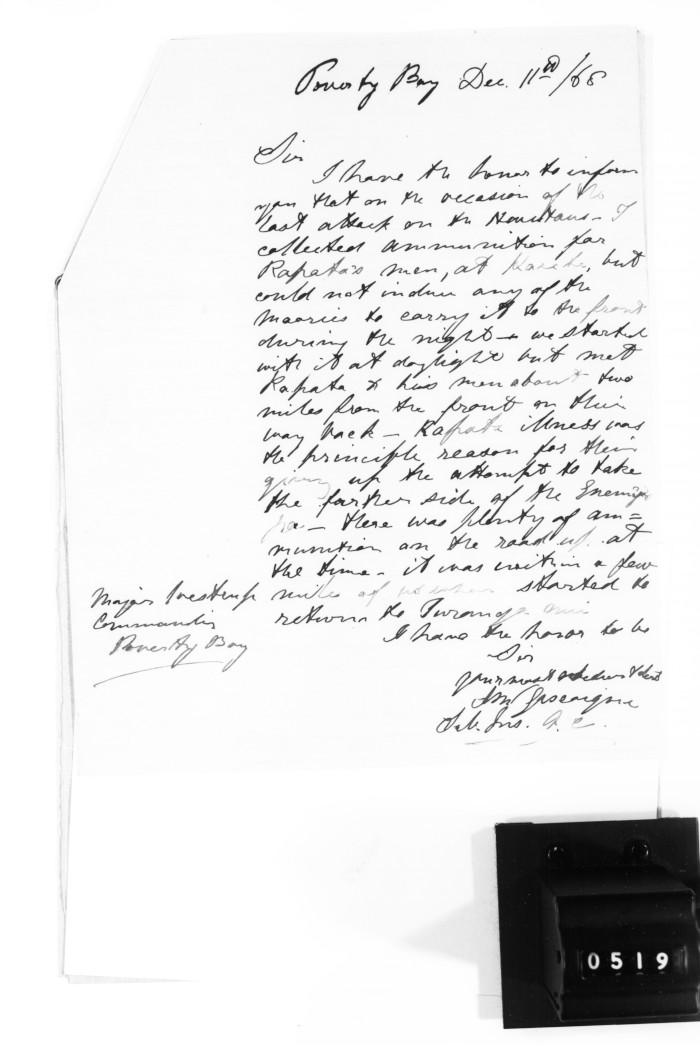 Poverty Bay Dec. 11th/68
Sir
I have the honor to inform
you that on the occasion of the
last attack on the Houhaus - I
collected ammunition for
Rapata's men, at , but
could not induce any of the
maories to carry it to the front
during the night - we started
with it at daylight but met
Rapata & his men about two
miles from the front on their
way back - Rapata illness was
the principle reason for their
giving up the attempt to take
the further side of the Enemys
Pa - there was plenty of am=
munition on the road up at
the time - it was within a few
miles of us when started to
return to Turanga
I have the honor to be
Sir
your most obedient Servt
Gascoigne
Sub. Ins. A. C.
Major Westrup
Commanding
Poverty Bay
0519